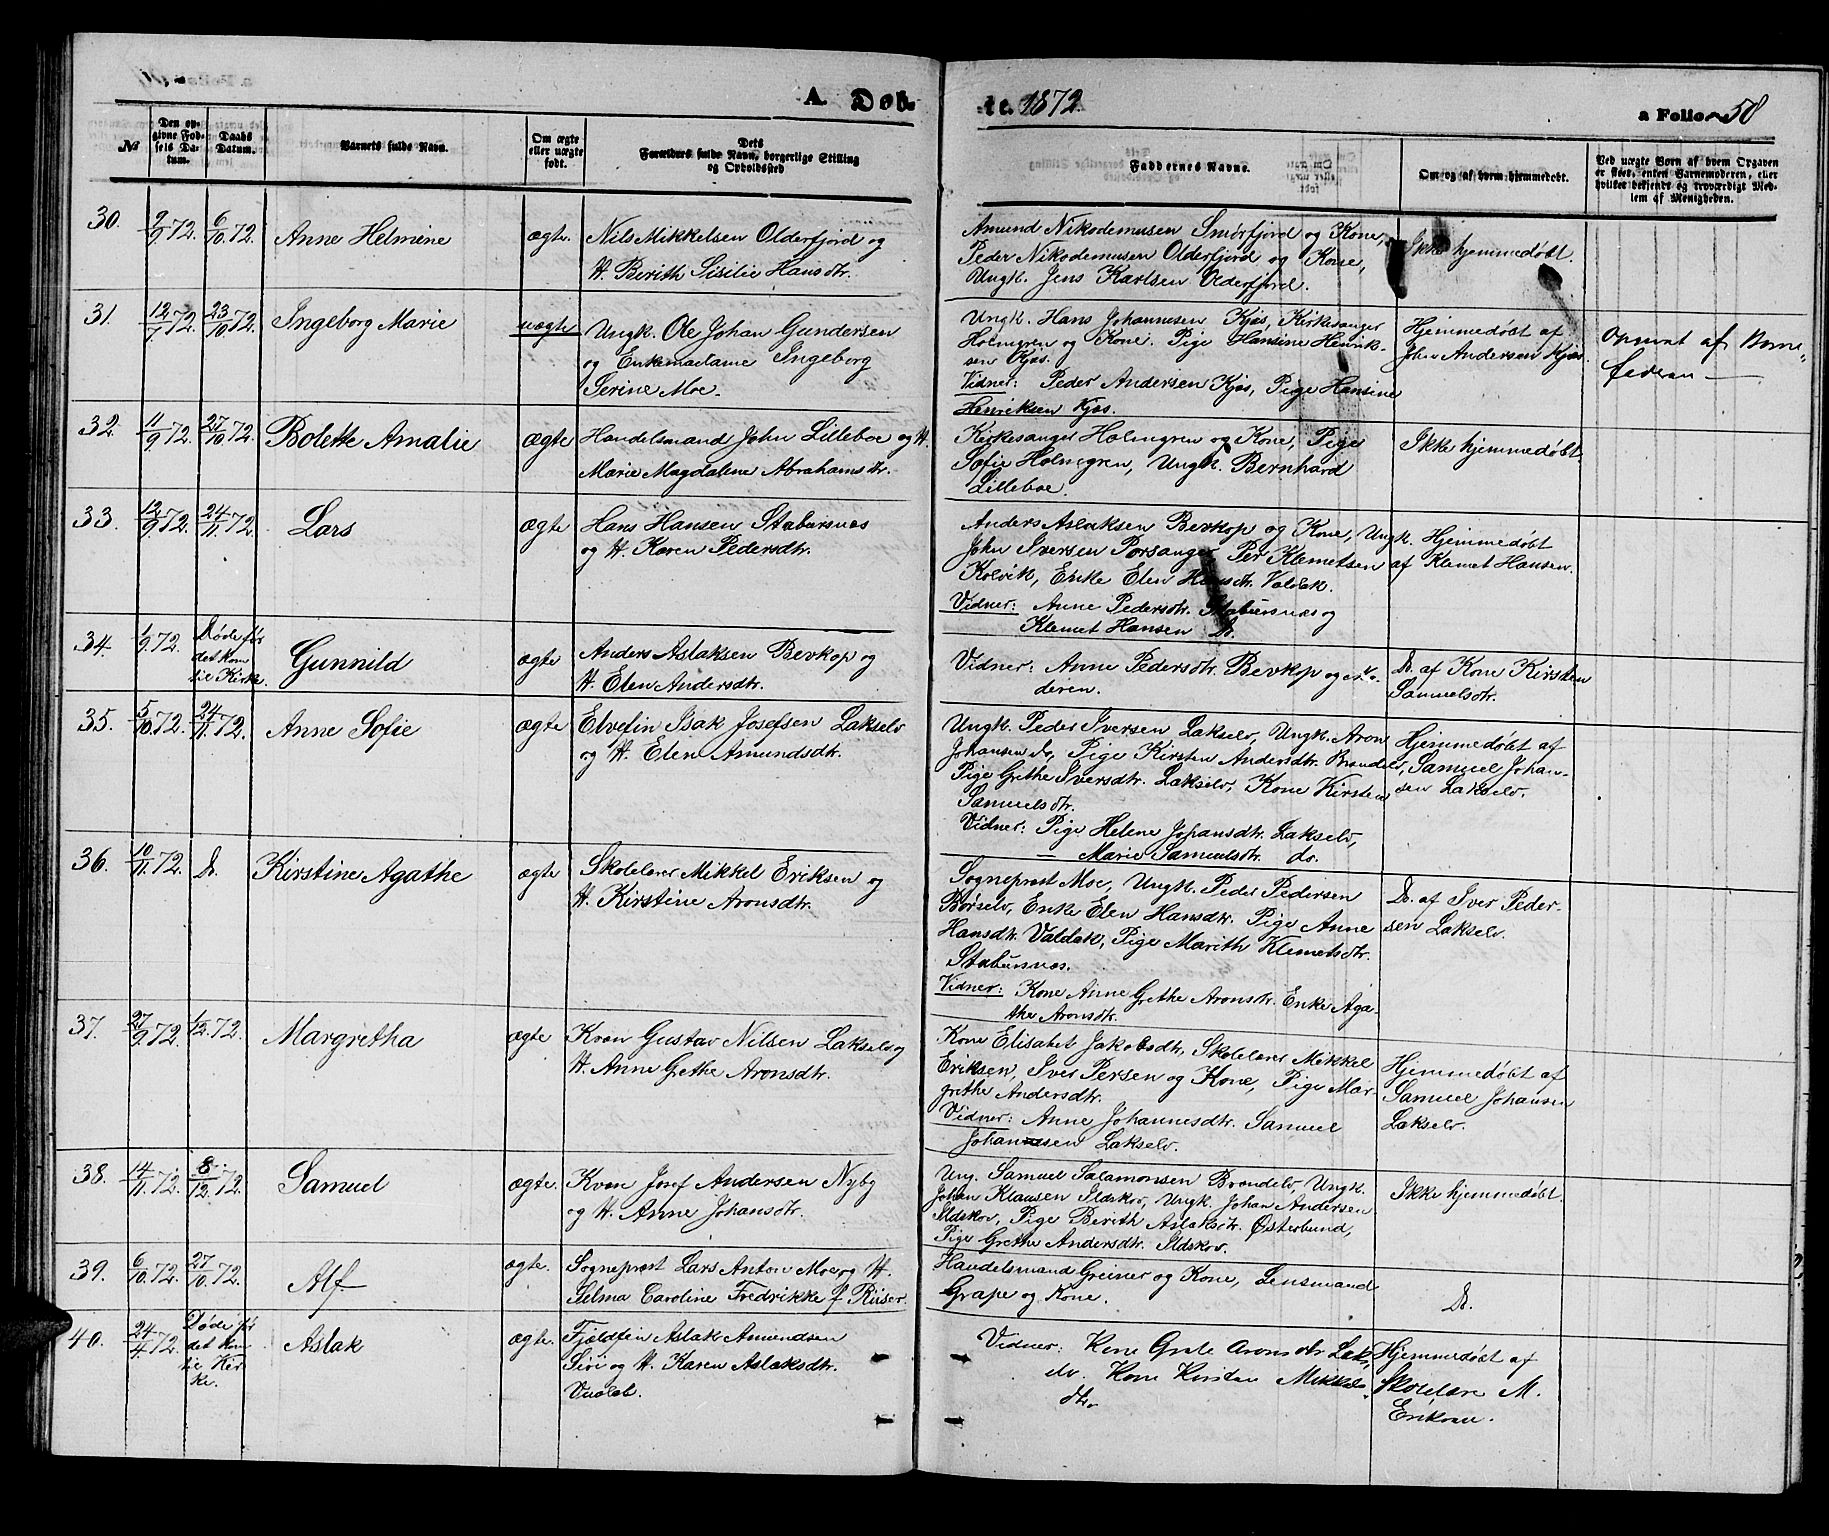 A. Døb-
te. 1872.
a Folio 58
№
Den op-
givne Fød-
sels Da-
tum.
Daabs
Datum.
Barnets fulde Navn.
Om ægte
eller uægte
født.
Dets
Forældres fulde Navn, borgerlige Stilling
og Opholdssted
Faddernes Navne.
Om og af hvem hjemmedøbt.
Ved uægte Børn af hvem Opgaven
er skeet, enten Barnemoderen, eller
hvilket bekjendt og troværdigt Med-
lem af Menigheden.
30. 2/9 72. 6/10 72. Anne Helmine ægte. Nils Mikkelsen Olderfjord og
H. Berith Sisilie Hansdtr.
Amund Nikodemusen Smörfjord og Kone,
Peder Nikodemusen Olderfjord og Kone,
Ungk. Jens Karlsen Olderfjord.
Ikke hjemmedøbt.
31. 12/7 72. 23/10 72. Ingeborg Marie uægte Ungk. Ole Johan Gundersen
og Enkemadame Ingeborg
Serine Moe.
Ungk. Hans Johannesen Kjæs, Kirkesanger
Holmgren og Kone. Pige Hansine Henrik-
sen Kjæs.
Vidner: Peder Andersen Kjæs, Pige Hansine
Henriksen Kjæs.
Hjemmedøbt af
John Andersen Kjæs.
Opgivet af Barne-
faderen
32. 11/9 72. 27/10 72. Bolette Amalie ægte Handelsmand John Lilleboe og H.
Marie Magdalene Abrahamsdtr.
Kirkesanger Holmgren og Kone, Pige
Sofie Holmgren, Ungk. Bernhard
Lilleboe.
Ikke hjemmedøbt.
33. 12/9 72. 24/11 72. Lars ægte Hans Hansen Stabursnæs
og H. Karen Pedersdtr.
Anders Aslaksen Bevkop og Kone, Ungk.
John Iversen Porsanger Per Klemetsen
Kolvik, Enke Elen Hansdtr. Valdak.
Vidner: Anne Pedersdtr. Stabursnæs og
Klemet Hansen Do.
Hjemmedøbt
af Klemet Hansen.
34. 1/9 72. Døde før
det kom
til Kirke. Gunnild ægte Anders Aslaksen Bevkop og
H. Elen Andersdtr.
Vidner: Anne Pedersdtr. Bevkop og Mo-
deren.
Do. af Kone Kirsten
Samuelsdtr.
35. 5/10 72. 24/11 72. Anne Sofie ægte Elvefin Isak Josefsen Lakselv
og H. Elen Amundsdtr.
Ungk. Peder Iversen Lakselv, Ungk. Aron
Johansen do, Pige Kirsten Andersdtr. Brændelv,
Pige Grethe Iversdtr. Lakselv, Kone Kirsten
Samuelsdtr.
Vidner: Pige Helene Johansdtr. Lakselv,
— Marie Samuelsdtr. do.
Hjemmedøbt af
Samuel Johan-
sen Lakselv.
36. 10/11 72. Do. Kirstine Agathe ægte Skolelærer Mikkel Eriksen og
H. Kirstine Aronsdtr.
Sogneprest Moe, Ungk. Peder Pedersen
Børselv, Enke Elen Hansdtr. Pige Anne
Hansdtr. Valdak, Pige Marith Klemetsdtr.
Stabursnæs.
Vidner: Kone Anne Grethe Aronsdtr. Enke Aga-
the Aronsdtr.
Do. af Iver Peder-
sen Lakselv.
37. 27/9 72. 1/12 72. Margretha ægte Kvæn Gustav Nilsen Lakselv og
H. Anne Grethe Aronsdtr.
Kone Elisabet Jakobsdtr, Skolelærer Mikkel
Eriksen, Iver Persen og Kone, Pige Mar-
grethe Andersdtr.
Vidner: Anne Johannesdtr. Samuel
Johannesen Lakselv.
Hjemmedøbt af
Samuel Johansen
Lakselv.
38. 14/11 72. 8/12 72. Samuel ægte. Kvæn Josef Andersen Nyby
og H. Anne Johansdtr.
Ung. Samuel Salamonsen Brændelv, Ungk.
Johan Klausen Ildskov, Ungk. Johan Andersen
Ildskov, Pige Berith Aslaksdtr. Østerbund,
Pige Grethe Andersdtr. Ildskov.
Ikke hjemmedøbt.
39. 6/10 72. 27/10 72. Alf ægte. Sogneprest Lars Anton Moe og H.
Selma Caroline Fredrikke f Riiser.
Handelsmand Greiner og Kone, Lensmand
Grape og Kone.
Do.
40. 24/4 72. Døde før
det kom
til Kir-
ke. Aslak ægte. Fjeldfin Aslak Amundsen
Siri og H. Karen Aslaksdtr.
Vidner: Kone Grete Aronsdtr Laks-
elv. Kone Kirsten Mikkels-
dtr
Hjemmedøbt af
Skolelære M.
Eriksen.